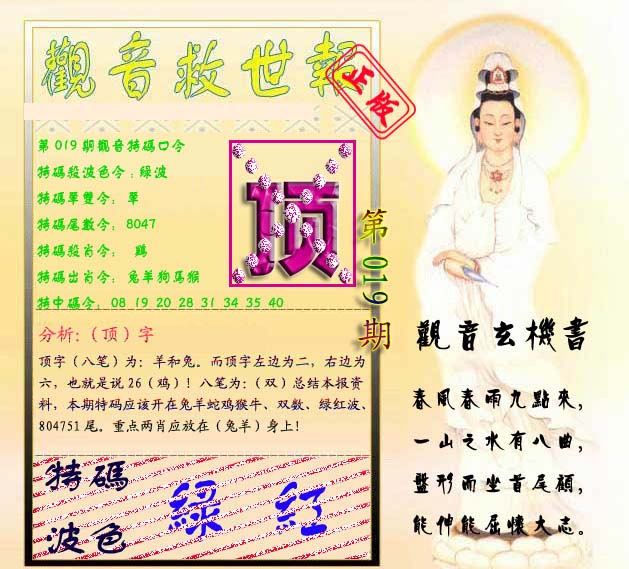 觀音救世報
正版
第019期觀音特碼口令
特碼殺波色令：綠波
特碼單雙令： 單
特碼尾數令：8047
特碼殺肖令： 鷄
特碼出肖令：兔羊狗馬猴
特中碼令：08 19 20 28 31 34 35 40
顶
第019期
分析:（顶）字
顶字（八笔）为：羊和兔。而顶字左边为二，右边为
六，也就是说26（鸡）！八笔为：（双）总结本报资
料，本期特码应该开在兔羊蛇鸡猴牛、双数、绿红波、
804751尾。重点两肖应放在（兔羊）身上！
特碼
波色
綠 紅
觀音玄機書
春風春雨九點來，
一山之水有八曲，
盤形而坐首尾顧，
能伸能屈懷大志。